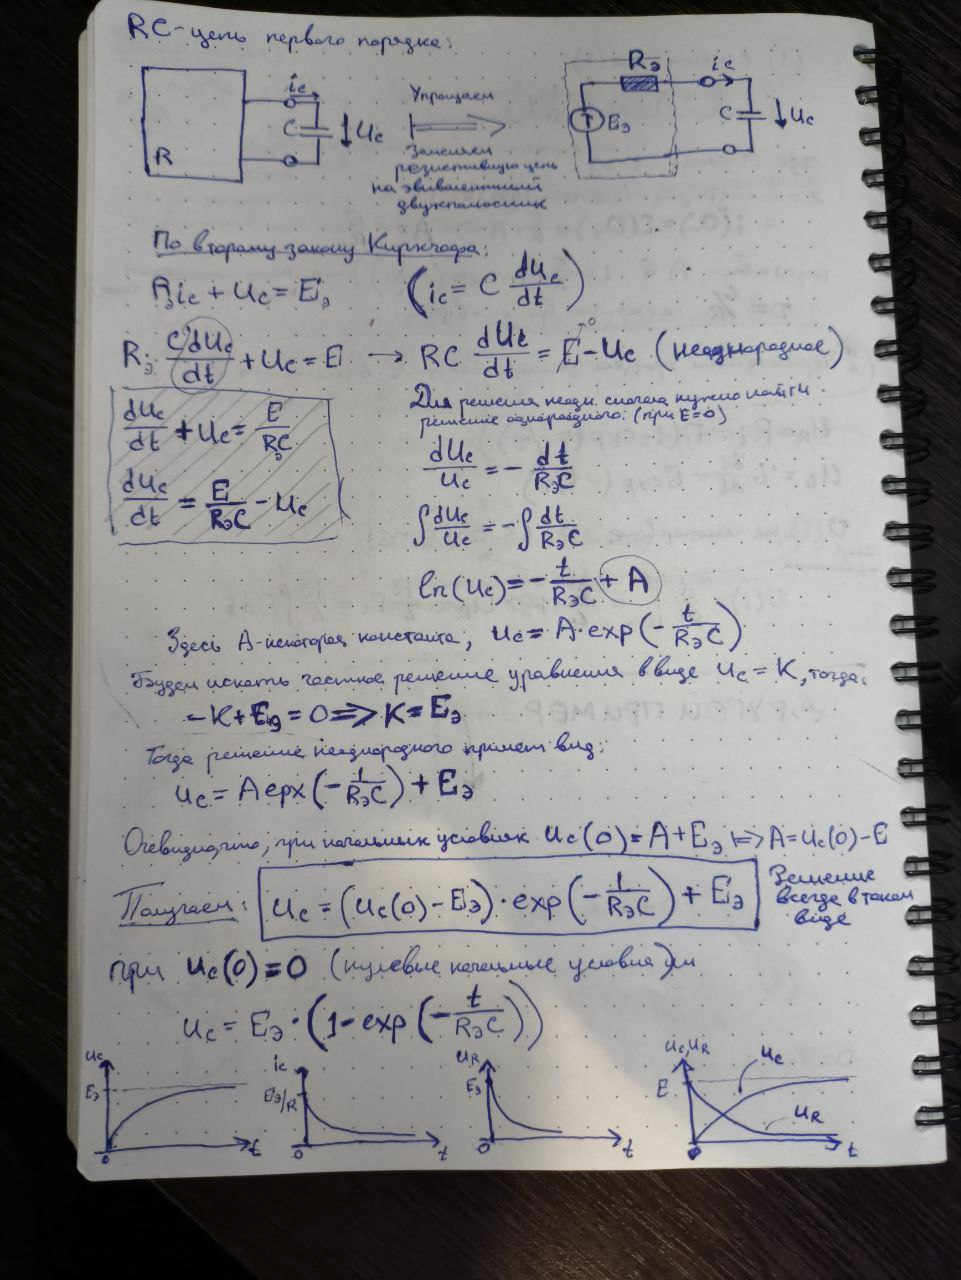 RC-цепь первого порядка:
R
ic
C
Uc
Упрощаем
Заменяем
резистивную цепь
на эвивалентный
двухполюсник
Rэ
Eэ
ic
C
Uc
По второму закону Кирхгофа:
Rэic + Uc = Eэ (ic = C dUc/dt)
Rэ C dUc/dt + Uc = E → RC dUc/dt = E - Uc (неоднародное)
dUc/dt + Uc = E/RэC
dUc/dt = E/RэC - Uc
Для решения неодн. сначала нужно найти
решение однородного: (при E=0)
dUc/Uc = - dt/RэC
∫ dUc/Uc = - ∫ dt/RэC
ln(Uc) = - t/RэC + A
Здесь A-некоторая константа, Uc = A·exp(- t/RэC)
Будем искать частное решение уравнения в виде Uc = K, тогда:
-K + Eэ = 0 => K = Eэ
Тогда решение неоднородного примет вид:
Uc = A epx(- 1/RэC) + Eэ
Очевидно, что, при начальных условиях Uc(0) = A + Eэ => A = Uc(0) - E
Получаем: Uc = (Uc(0) - Eэ) · exp(- 1/RэC) + Eэ
Решение
всегда в таком
виде
при Uc(0) = 0 (нулевые начальные условия)
Uc = Eэ · (1 - exp(- t/RэC))
Uc
Eэ
0
t
ic
Eэ/R
0
t
UR
Eэ
0
t
Uc, UR
E
Uc
UR
0
t